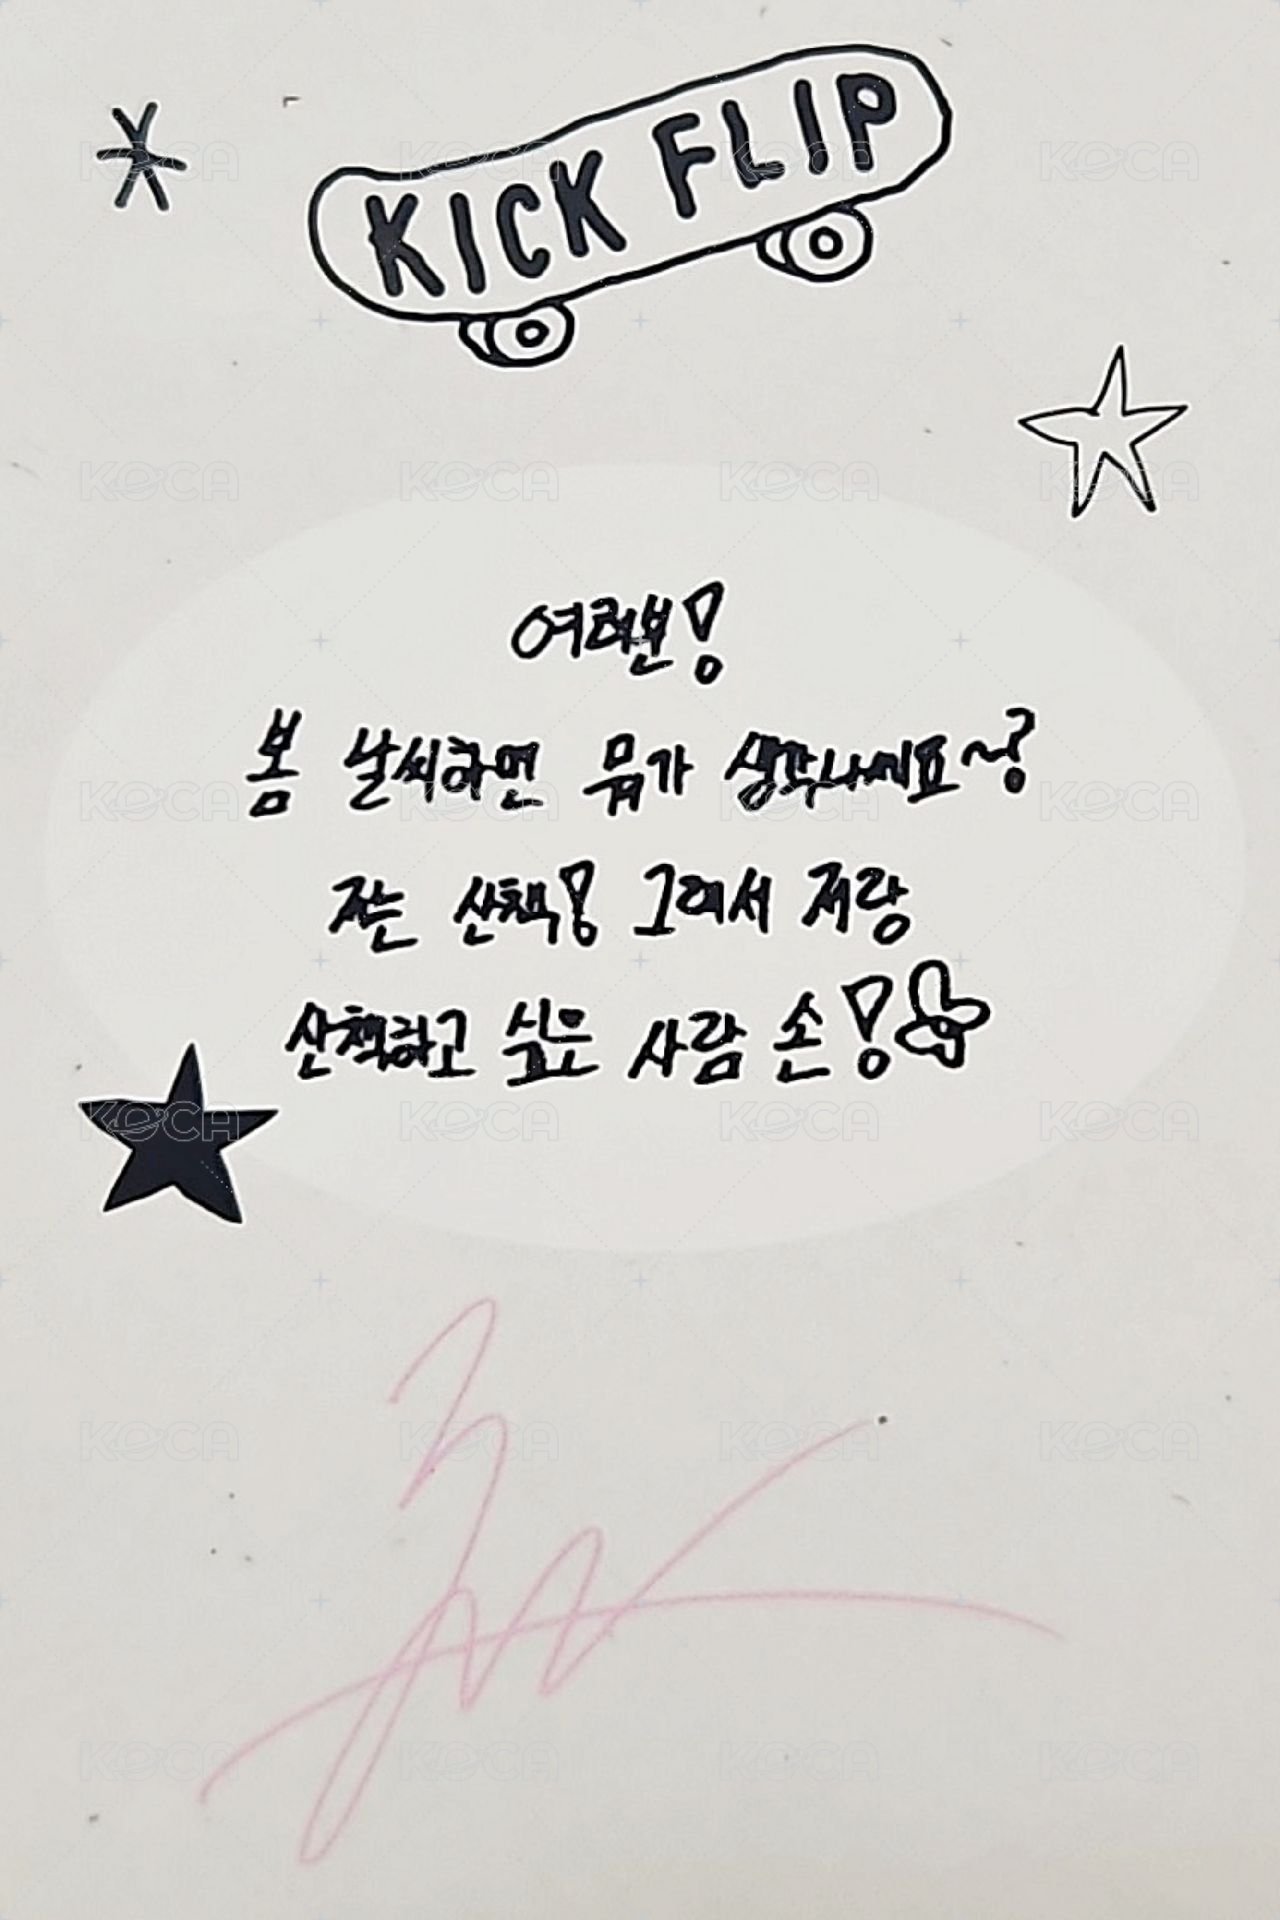 KICK FLIP
여러분!
봄 날씨하면 뭐가 생각나세요~?
저는 산책! 그래서 저랑
산책하고 싶은 사람 손!